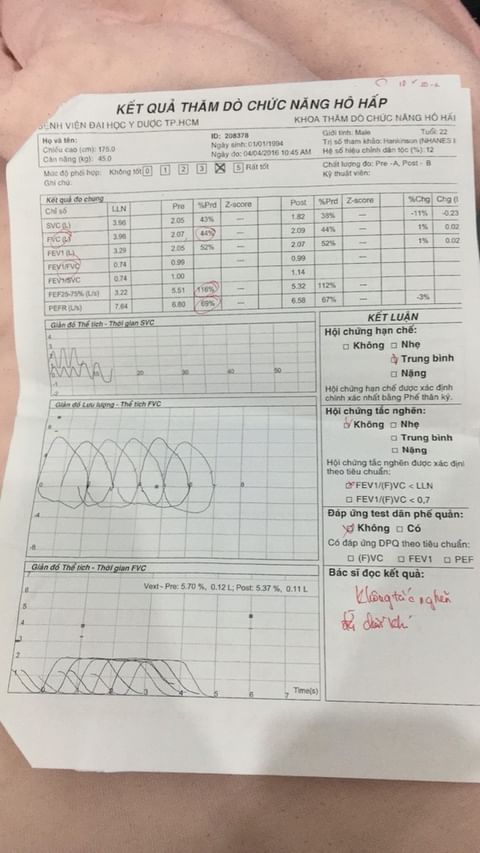 KẾT QUẢ THĂM DÒ CHỨC NĂNG HÔ HẤP
BỆNH VIỆN ĐẠI HỌC Y DƯỢC TP.HCM
KHOA THĂM DÒ CHỨC NĂNG HÔ HẤ
Họ và tên:
ID: 208378
Giới tính: Male
Tuổi: 22
Chiều cao (cm): 175.0
Ngày sinh: 01/01/1994
Trị số tham khảo: Hankinson (NHANES I
Cân nặng (kg): 45.0
Ngày đo: 04/04/2016 10:45 AM
Hệ số hiệu chỉnh dân tộc (%): 12
Mức độ phối hợp: Không tốt 0 1 2 3 5 Rất tốt
Chất lượng đo: Pre -A, Post - B
Ghi chú:
Kỹ thuật viên:
Kết quả đo chung
Chỉ số LLN Pre %Prd Z-score Post %Prd Z-score %Chg Chg (l
SVC (L) 3.96 2.05 43% — 1.82 38% — -11% -0.23
FVC (L) 3.96 2.07 44% — 2.09 44% — 1% 0.02
FEV1 (L) 3.29 2.05 52% — 2.07 52% — 1% 0.02
FEV1/FVC 0.74 0.99 — 0.99 —
FEV1/SVC 0.74 1.00 1.14
FEF25-75% (L/s) 3.22 5.51 116% — 5.32 112% —
PEFR (L/s) 7.64 6.80 69% — 6.58 67% — -3%
Giản đồ Thể tích - Thời gian SVC
20 30 40 50
Giản đồ Lưu lượng - Thể tích FVC
Giản đồ Thể tích - Thời gian FVC
Vext - Pre: 5.70 %, 0.12 L; Post: 5.37 %, 0.11 L
0 1 2 3 4 5 6 7 Time(s)
KẾT LUẬN
Hội chứng hạn chế:
Không Nhẹ
Trung bình
Nặng
Hội chứng hạn chế được xác định
chính xác nhất bằng Phế thân ký.
Hội chứng tắc nghẽn:
Không Nhẹ
Trung bình
Nặng
Hội chứng tắc nghẽn được xác định
theo tiêu chuẩn:
FEV1/(F)VC < LLN
FEV1/(F)VC < 0,7
Đáp ứng test dãn phế quản:
Không Có
Có đáp ứng DPQ theo tiêu chuẩn:
(F)VC FEV1 PEF
Bác sĩ đọc kết quả:
Không tắc nghẽn